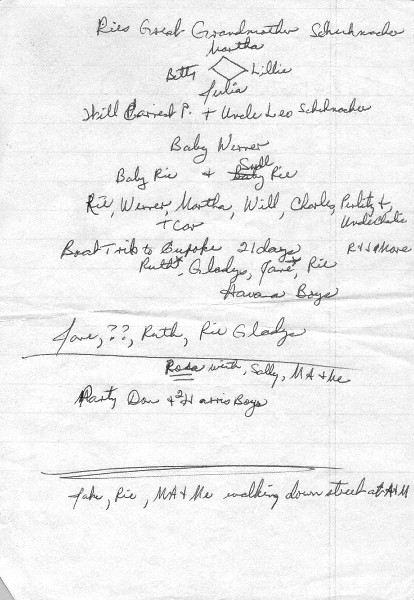 Ries Great Grandmother Schuhmacher
Martha
Betty Lillie
Julia
Will Earnest P. + Uncle Leo Schuhmacher
Baby Werner
Baby Rie + Syll Rie
Rie, Werner, Martha, Will, Charles,
+ Car
Boat Trip to Europe 21 days
Ruth, Gladys, Jane, Rie
Havana Boys
Jane, ??, Ruth, Rie Gladys
Rosa with, Sally, MA + Me
Party Don + 2 Harris Boys
Jake, Rie, MA + Me walking down street at A+M